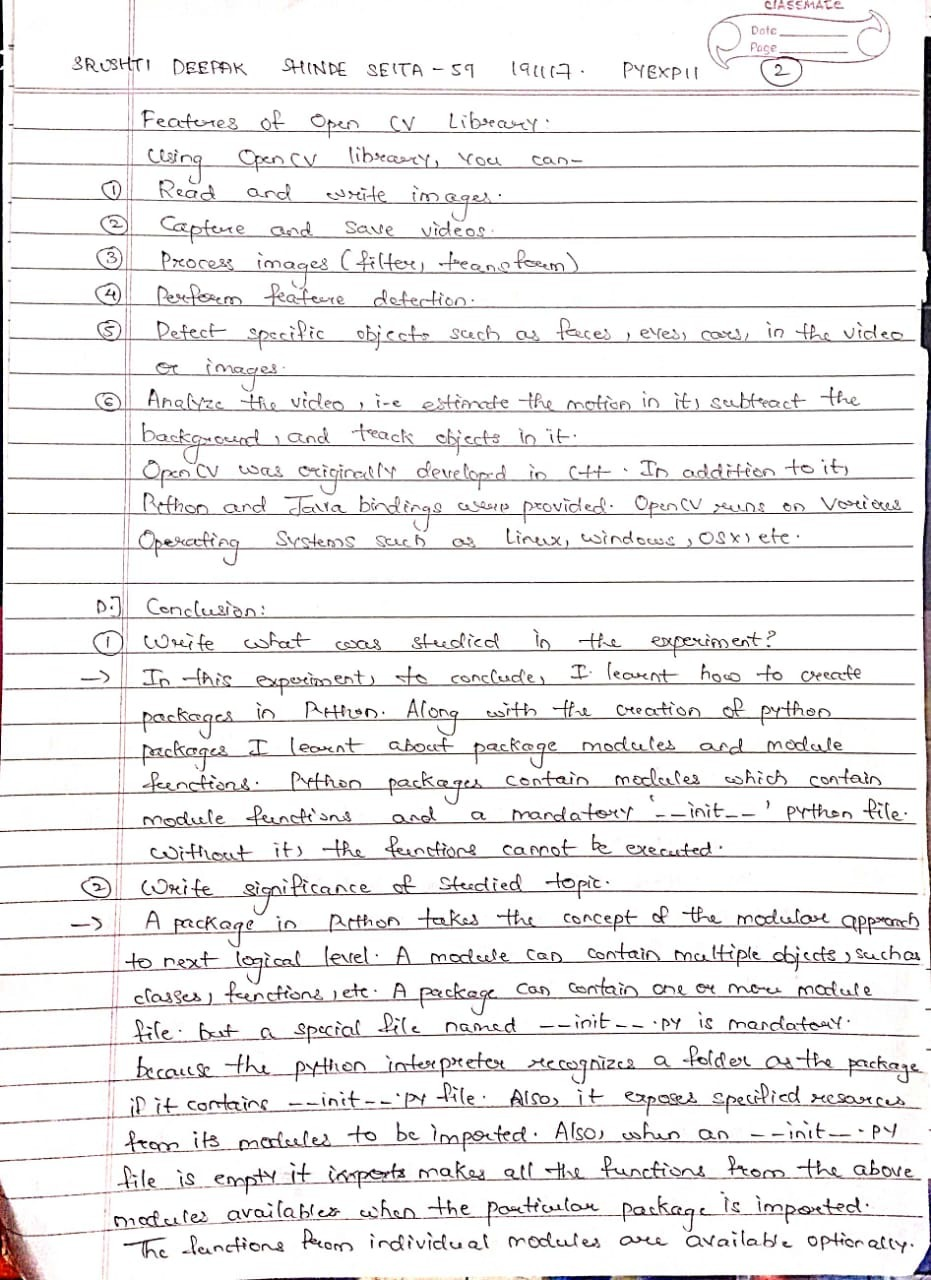 CLASSMATE
Date
Page
SRUSHTI DEEPAK SHINDE SEITA - 59 191117. PYEXP11 2
Features of Open CV Library:
Using OpenCV library, you can-
① Read and write images.
② Capture and save videos.
③ Process images (filter, transform)
④ Perform feature detection.
⑤ Detect specific objects such as faces, eyes, cars, in the video
or images.
⑥ Analyze the video, i-e estimate the motion in it, subtract the
background, and track objects in it.
OpenCV was originally developed in C++. In addition to it,
Python and Java bindings were provided. OpenCV runs on Various
Operating Systems such as Linux, windows, OSX, etc.
D.] Conclusion:
① Write what was studied in the experiment?
→ In this experiment, to conclude, I learnt how to create
packages in Python. Along with the creation of python
packages I learnt about package modules and module
functions. Python packages contain modules which contain
module functions and a mandatory '__init__' python file.
Without it, the functions cannot be executed.
② Write significance of studied topic.
→ A package in Python takes the concept of the modular approach
to next logical level. A module can contain multiple objects, such as
classes, functions, etc. A package can contain one or more module
file. but a special file named __init__.py is mandatory.
because the python interpreter recognizes a folder as the package
if it contains __init__.py file. Also, it exposes specified resources
from its modules to be imported. Also, when an __init__.py
file is empty it imports makes all the functions from the above
modules available when the particular package is imported.
The functions from individual modules are available optionally.